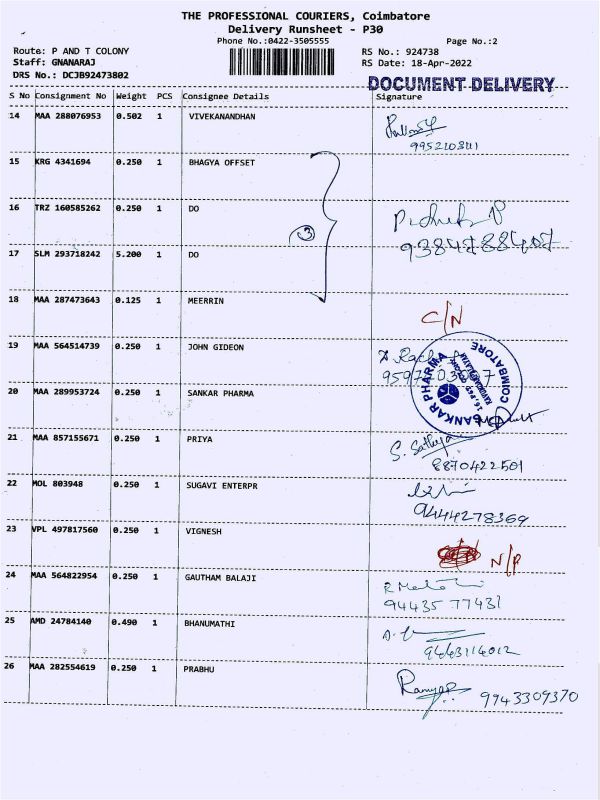 THE PROFESSIONAL COURIERS, Coimbatore
Delivery Runsheet - P30
Phone No.:0422-3505555
Page No.:2
Route: P AND T COLONY
RS No.: 924738
Staff: GNANARAJ
RS Date: 18-Apr-2022
DRS No.: DCJB92473802
DOCUMENT DELIVERY
S No Consignment No Weight PCS Consignee Details Signature
14 MAA 288076953 0.502 1 VIVEKANANDHAN
15 KRG 4341694 0.250 1 BHAGYA OFFSET
16 TRZ 160585262 0.250 1 DO
3
17 SLM 293718242 5.200 1 DO
18 MAA 287473643 0.125 1 MEERRIN
C/N
19 MAA 564514739 0.250 1 JOHN GIDEON
20 MAA 289953724 0.250 1 SANKAR PHARMA
SANKAR PHARMA
COIMBATORE
21 MAA 857155671 0.250 1 PRIYA
S. Sathya
8870422501
22 MOL 803948 0.250 1 SUGAVI ENTERPR
9444278369
23 VPL 497817560 0.250 1 VIGNESH
N/P
24 MAA 564822954 0.250 1 GAUTHAM BALAJI
94435 77431
25 AMD 24784140 0.490 1 BHANUMATHI
9443114012
26 MAA 282554619 0.250 1 PRABHU
9943309370